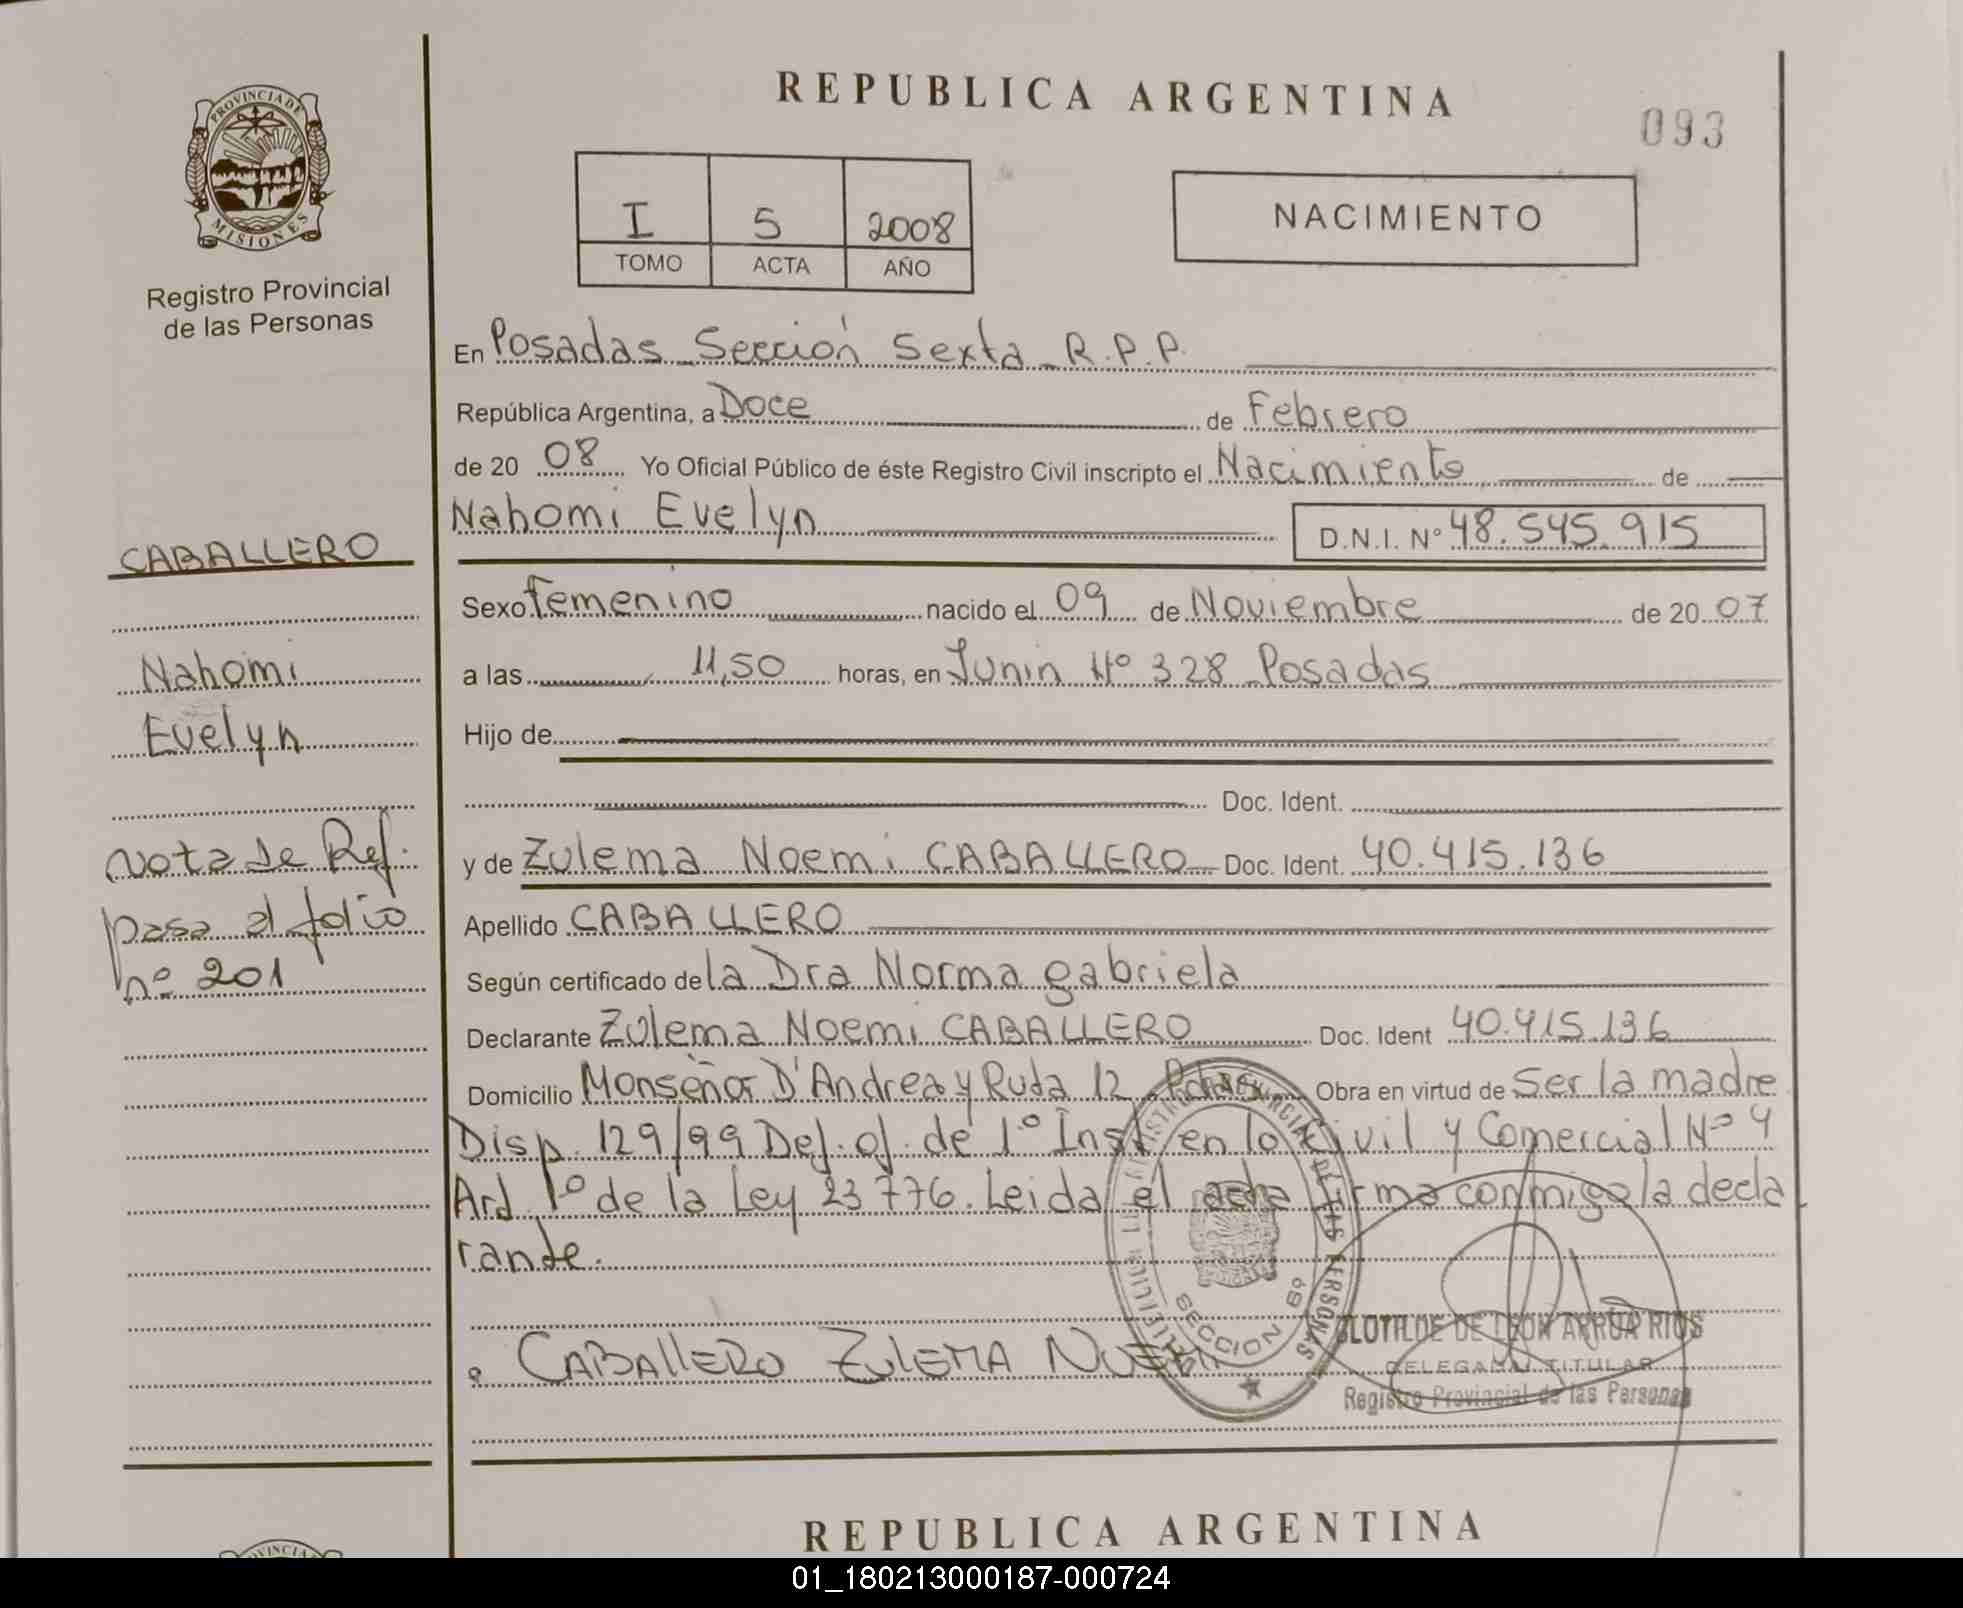 REPUBLICA ARGENTINA
093
PROVINCIA DE
MISIONES
Registro Provincial
de las Personas
I 5 2008
TOMO ACTA AÑO
NACIMIENTO
En Posadas Sección Sexta R.P.P.
República Argentina, a Doce de Febrero
de 20 08 Yo Oficial Público de éste Registro Civil inscripto el Nacimiento de
Nahomi Evelyn D.N.I. Nº 48.545.915
Sexo femenino nacido el 09 de Noviembre de 20 07
a las 11,50 horas, en Junin Nº 328 Posadas
Hijo de
Doc. Ident.
y de Zulema Noemi CABALLERO Doc. Ident. 40.415.136
Apellido CABALLERO
Según certificado de la Dra Norma gabriela
Declarante Zulema Noemi CABALLERO Doc. Ident 40.415.136
Domicilio Monseñor D'Andrea y Ruta 12 Pdas Obra en virtud de Ser la madre
Disp. 129/99 Def. of. de 1º Inst en lo Civil y Comercial Nº 4
Art 1º de la Ley 23776. Leida el acta firma conmigo la decla
rante.
CABAllERO ZULEMA NOEMI
CABALLERO
Nahomi
Evelyn
Nota de Ref.
pasa al folio
nº 201
REGISTRO PROVINCIAL DE LAS PERSONAS
SECCION 6º
CLOTILDE DE LEON ARRUA RIOS
DELEGADA TITULAR
Registro Provincial de las Personas
REPUBLICA ARGENTINA
01_180213000187-000724